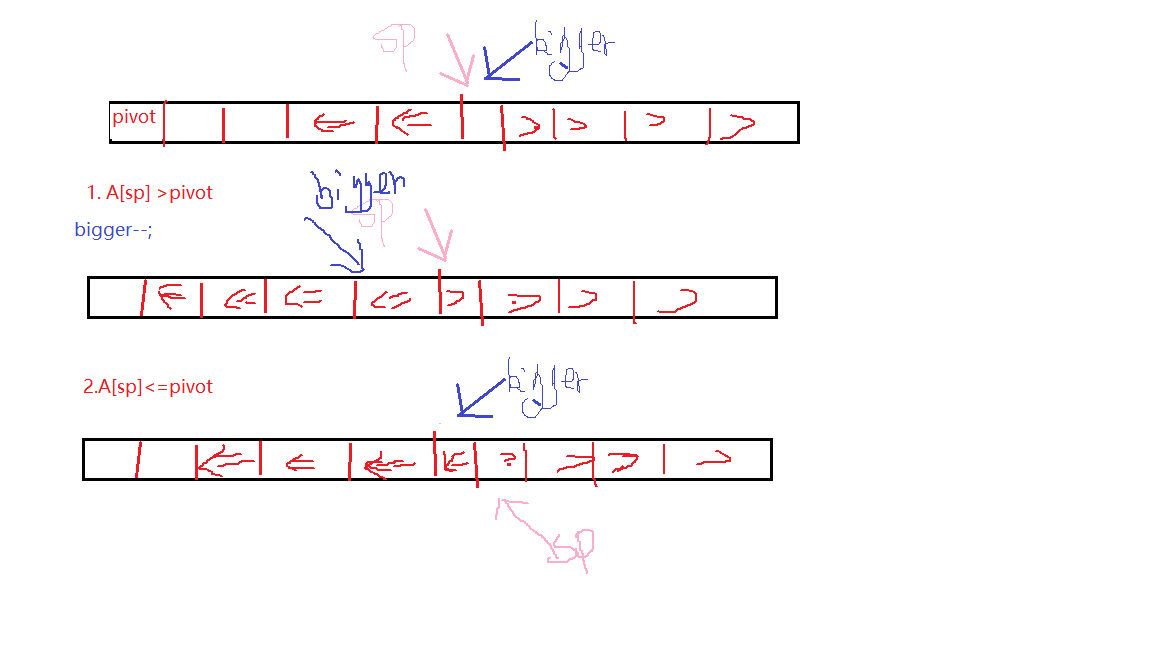 sp bigger
pivot <= <= > > > >
1. A[sp] >pivot
bigger
bigger--;
sp
<= <= <= <= > > > >
2.A[sp]<=pivot
bigger
<= <= <= <= ? > > >
sp